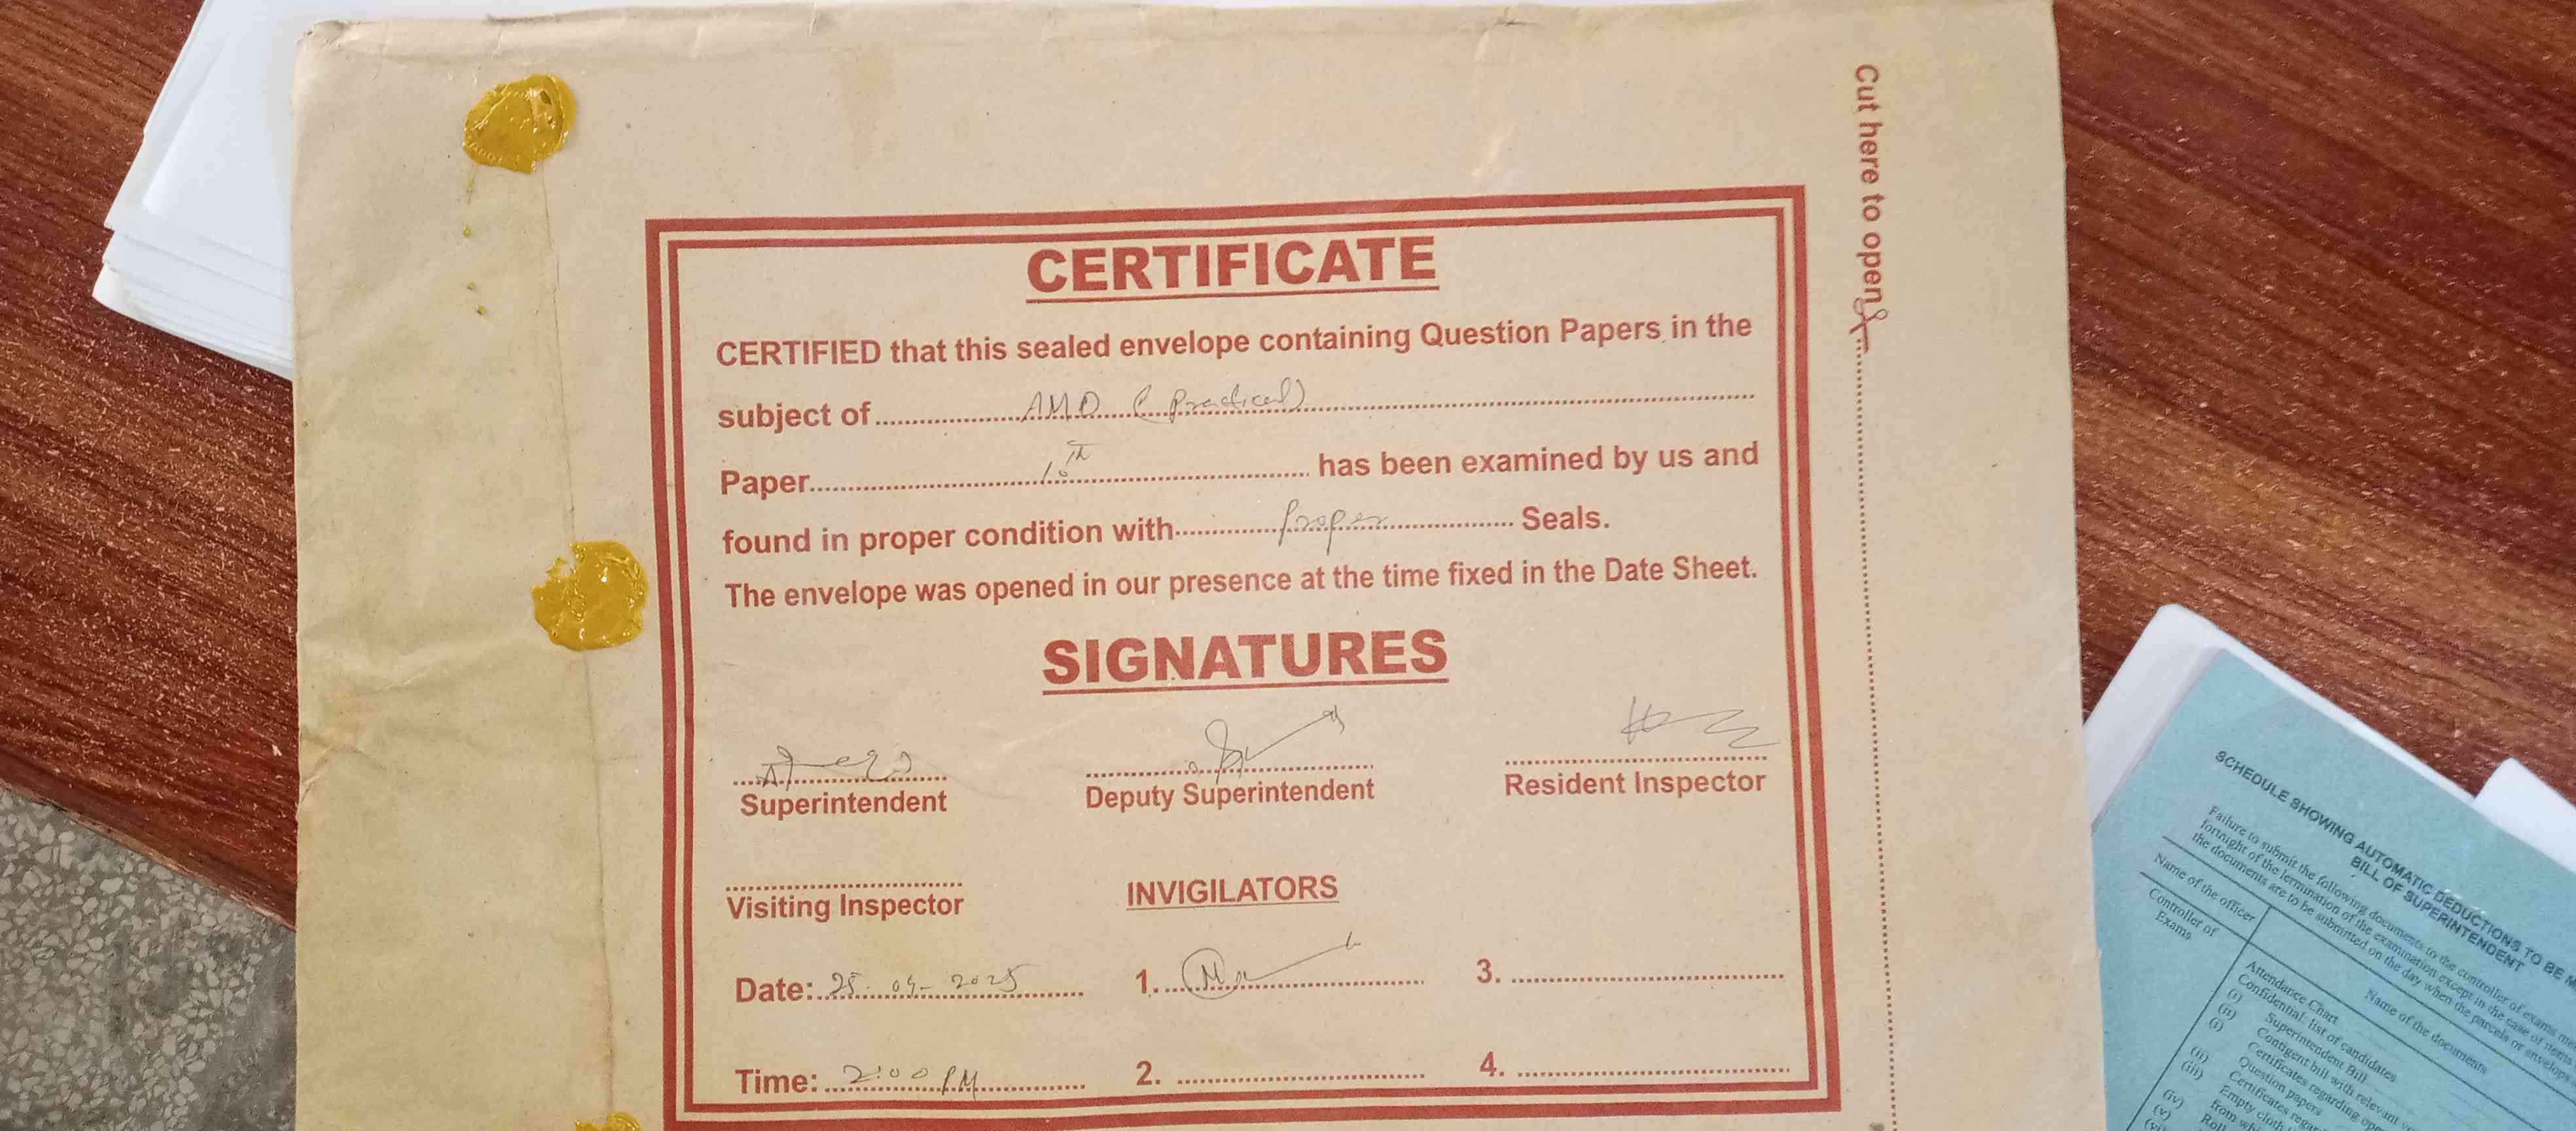 Cut here to open
CERTIFICATE
CERTIFIED that this sealed envelope containing Question Papers in the
subject of AMD (Practical)
Paper 10th has been examined by us and
found in proper condition with proper Seals.
The envelope was opened in our presence at the time fixed in the Date Sheet.
SIGNATURES
Superintendent Deputy Superintendent Resident Inspector
Visiting Inspector INVIGILATORS
Date: 25-04-2025 1. 3.
Time: 2:00 PM 2. 4.
SCHEDULE SHOWING AUTOMATIC DEDUCTIONS TO BE
BILL OF SUPERINTENDENT
Failure to submit the following documents to the controller of exams
fortnight of the termination of the examination except in the case of items
the documents are to be submitted on the day when the parcels or
Name of the officer
Name of the documents
Controller of
Exams
Attendance Chart
(i) Confidential list of candidates
(ii) Superintendent Bill
(i) Contigent bill with relevant
Certificates regarding
(ii) Question papers
(iii) Certificates
(iv) Empty cloth
(v) from